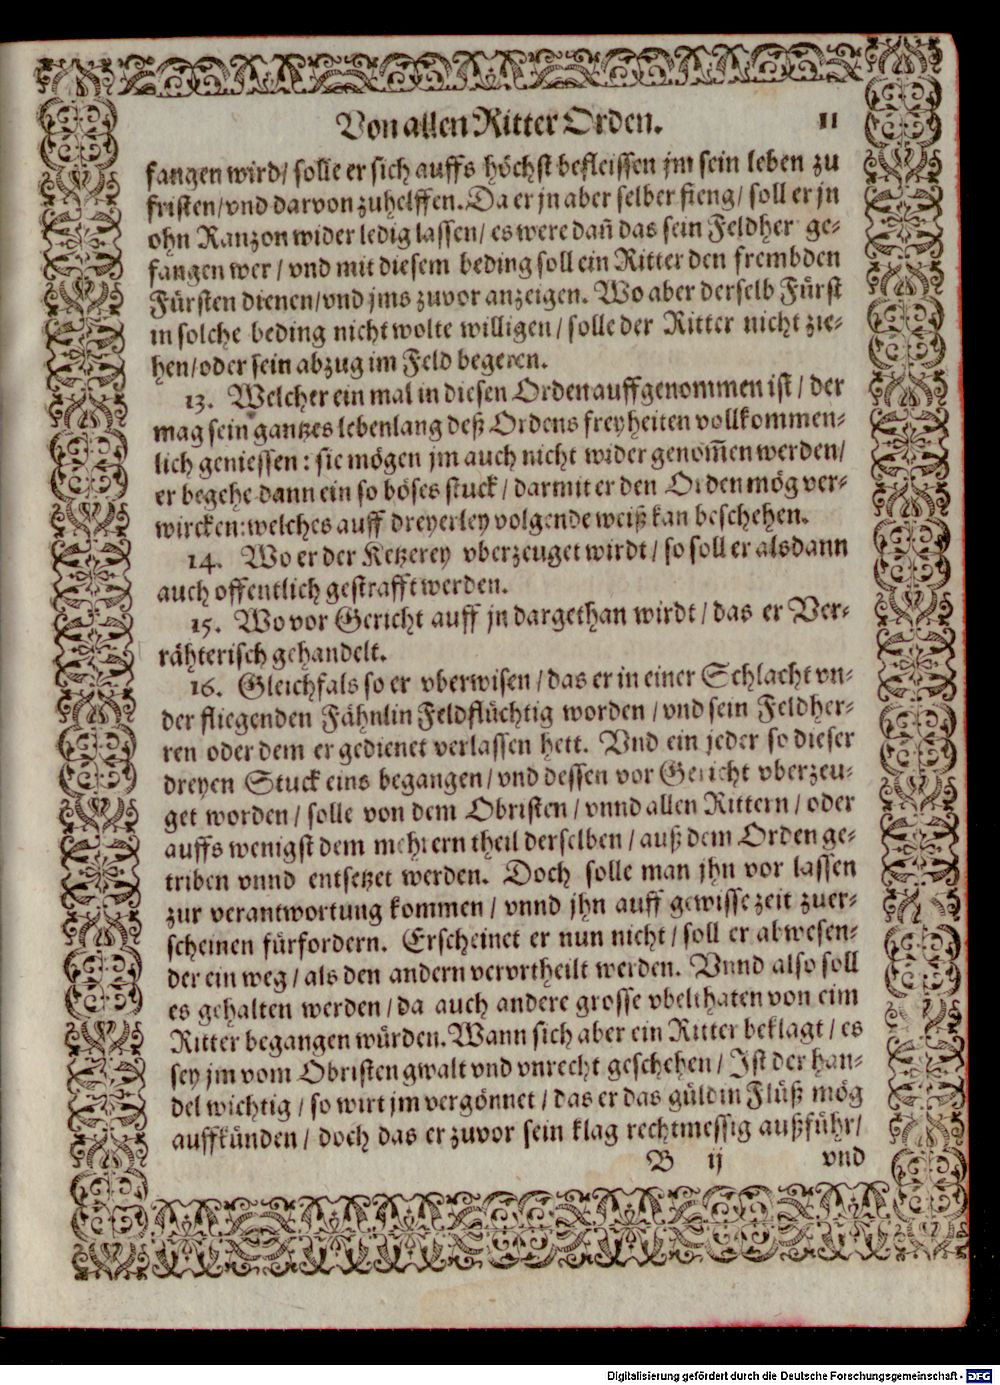 Von allen Ritter Orden. 11
fangen wird/ solle er sich auffs höchst befleissen jm sein leben zu
fristen/vnd darvon zuhelffen. Da er jn aber selber fieng/ soll er jn
ohn Ranzon wider ledig lassen/ es were dañ das sein Feldher ge-
fangen wer / vnd mit diesem beding soll ein Ritter den frembden
Fürsten dienen/vnd jms zuvor anzeigen. Wo aber derselb Fürst
in solche beding nicht wolte willigen/ solle der Ritter nicht zie-
hen/oder sein abzug im Feld begeren.
13. Welcher ein mal in diesen Orden auffgenommen ist / der
mag sein gantzes lebenlang deß Ordens freyheiten vollkommen-
lich geniessen: sie mögen jm auch nicht wider genom̃en werden/
er begehe dann ein so böses stuck / darmit er den Orden mög ver-
wircken: welches auff dreyerley volgende weiß kan beschehen.
14. Wo er der Ketzerey vberzeuget wirdt / so soll er alsdann
auch offentlich gestrafft werden.
15. Wo vor Gericht auff jn dargethan wirdt / das er Ver-
rähterisch gehandelt.
16. Gleichfals so er vberwisen / das er in einer Schlacht vn-
der fliegenden Fähnlin Feldflüchtig worden / vnd sein Feldher-
ren oder dem er gedienet verlassen hett. Vnd ein jeder so dieser
dreyen Stuck eins begangen/ vnd dessen vor Gericht vberzeu-
get worden / solle von dem Obristen / vnnd allen Rittern / oder
auffs wenigst dem mehrern theil derselben / auß dem Orden ge-
triben vnnd entsetzet werden. Doch solle man jhn vor lassen
zur verantwortung kommen / vnnd jhn auff gewisse zeit zuer-
scheinen fürfordern. Erscheinet er nun nicht / soll er abwesen-
der ein weg / als den andern verurtheilt werden. Vnnd also soll
es gehalten werden / da auch andere grosse vbelthaten von eim
Ritter begangen würden. Wann sich aber ein Ritter beklagt / es
sey jm vom Obristen gwalt vnd vnrecht geschehen / Ist der han-
del wichtig / so wirt jm vergönnet / das er das güldin Flüß mög
auffkünden / doch das er zuvor sein klag rechtmessig außführ/
B ij vnd
Digitalisierung gefördert durch die Deutsche Forschungsgemeinschaft - DFG